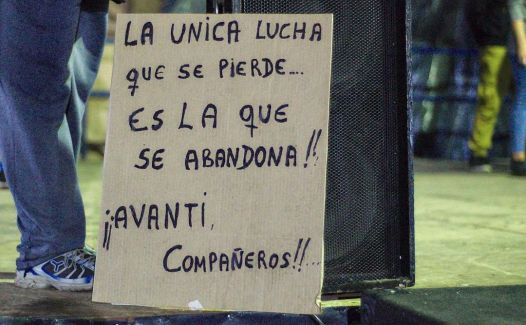 LA UNICA LUCHA
QUE SE PIERDE....
ES LA QUE
SE ABANDONA!!
¡¡AVANTI,
COMPAÑEROS!!...